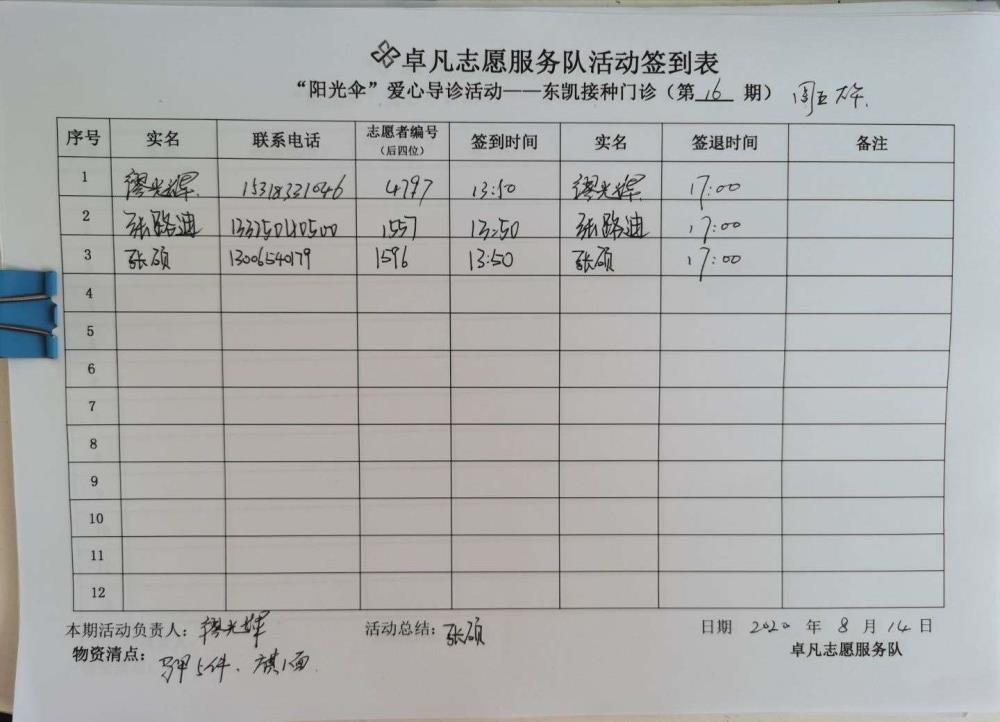 卓凡志愿服务队活动签到表
“阳光伞”爱心导诊活动——东凯接种门诊（第16期） 周五下午
序号 实名 联系电话 志愿者编号（后四位） 签到时间 实名 签退时间 备注
1 缪光辉 15318331046 4797 13:50 缪光辉 17:00
2 张路迪 13325040500 1557 13:50 张路迪 17:00
3 张硕 13006540179 1596 13:50 张硕 17:00
4
5
6
7
8
9
10
11
12
本期活动负责人：缪光辉 活动总结：张硕 日期 2020 年 8 月 14 日
物资清点：马甲5件、旗1面 卓凡志愿服务队